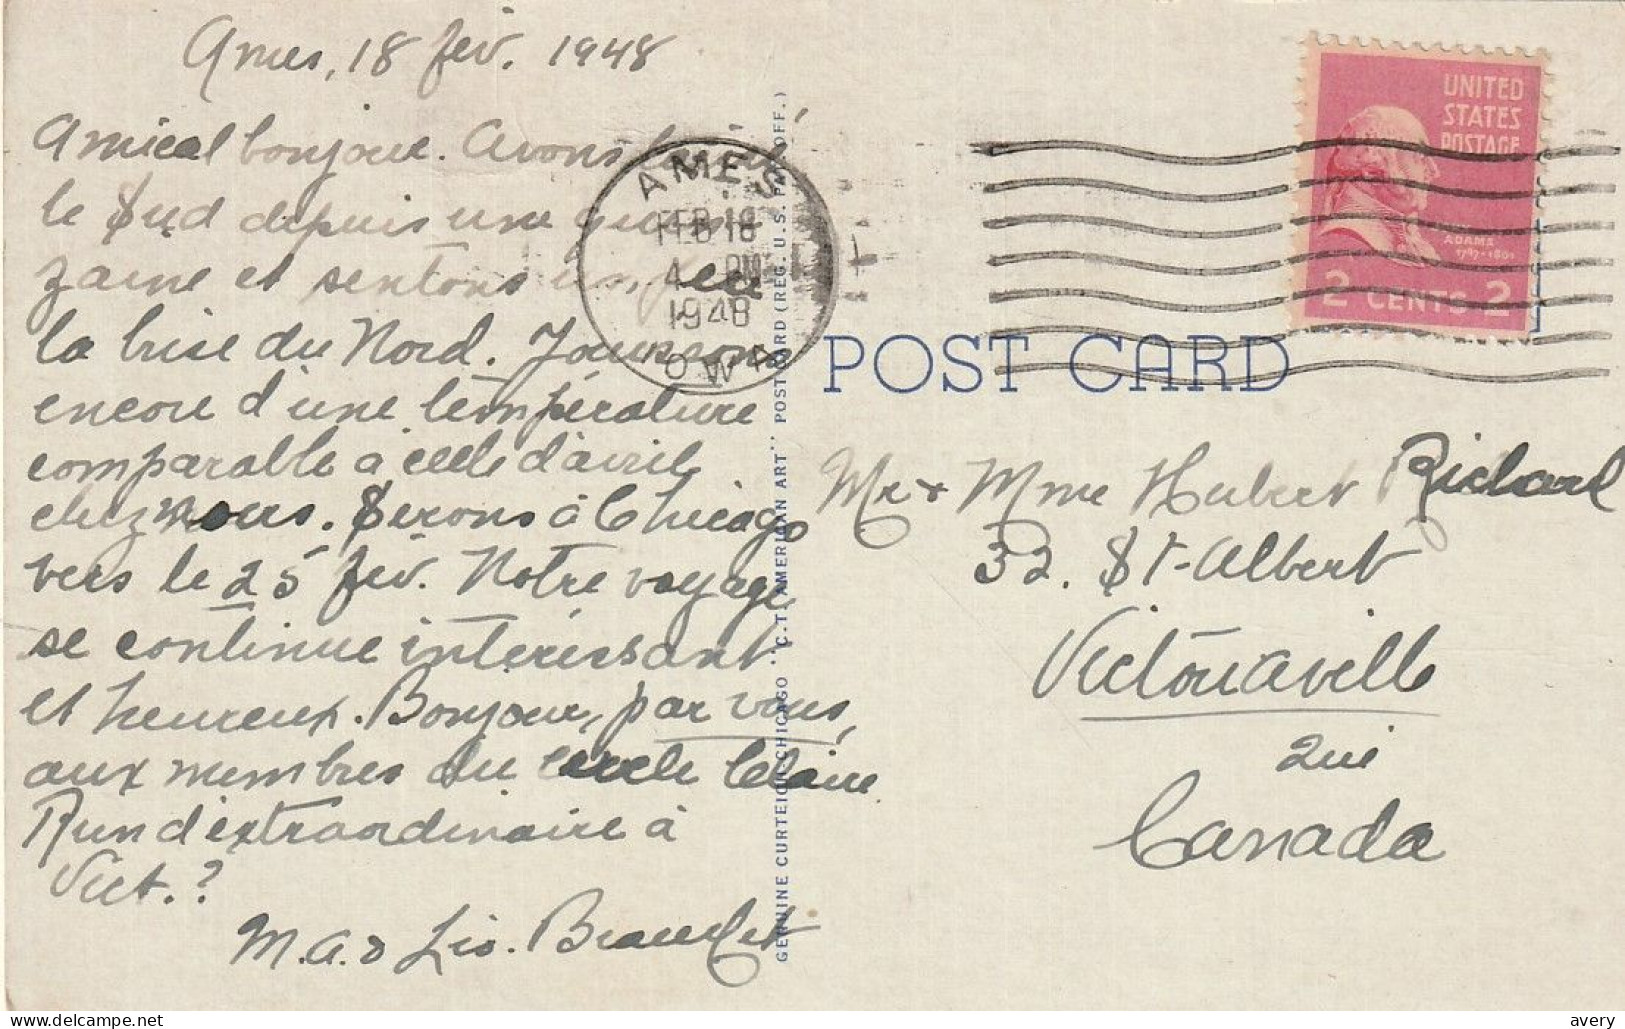 Ames, 18 fév. 1948
Amical bonjour. Avons
le Sud depuis une quin-
zaine et sentons un peu
la brise du Nord. Jouissons
encore d'une température
comparable à celle d'avril
chez vous. Serons à Chicago
vers le 25 fév. Notre voyage
se continue intéressant
et heureux. Bonjour, par vous,
aux membres du cercle Claire
Rien d'extraordinaire à
Vict.?
M.A. & Léo. Beaudet
AMES
FEB 18
4 PM
1948
IOWA
GENUINE CURTEICH-CHICAGO "C.T. AMERICAN ART" POST CARD (REG. U.S. PAT. OFF.)
UNITED
STATES
POSTAGE
ADAMS
1797-1801
2 CENTS 2
POST CARD
Mr & Mme Hubert Richard
32. St-Albert
Victoriaville
Qué
Canada
avery